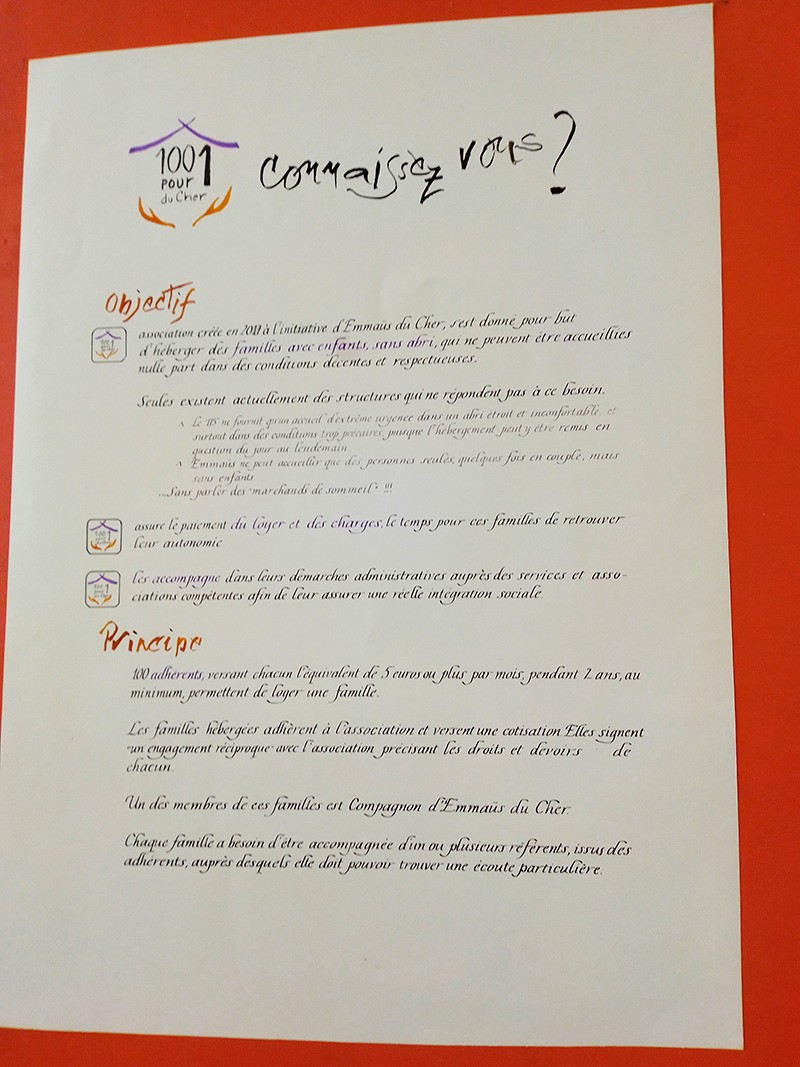 1001
pour
du Cher
connaissez vous ?
Objectif
association créée en 2017 à l'initiative d'Emmaüs du Cher, s'est donné pour but
d'héberger des familles avec enfants, sans abri, qui ne peuvent être accueillies
nulle part dans des conditions décentes et respectueuses.
Seules existent actuellement des structures qui ne répondent pas à ce besoin.
^ Le 115 ne fournit qu'un accueil d'extrême urgence dans un abri étroit et inconfortable, et
surtout dans des conditions trop précaires, puisque l'hébergement peut y être remis en
question du jour au lendemain.
^ Emmaüs ne peut accueillir que des personnes seules, quelques fois en couple, mais
sans enfants
...Sans parler des "marchands de sommeil" !!!
assure le paiement du loyer et des charges, le temps pour ces familles de retrouver
leur autonomie.
les accompagne dans leurs démarches administratives auprès des services et asso-
ciations compétentes afin de leur assurer une réelle intégration sociale.
Principe
100 adhérents, versant chacun l'équivalent de 5 euros ou plus par mois, pendant 2 ans, au
minimum, permettent de loger une famille.
Les familles hébergées adhèrent à l'association et versent une cotisation Elles signent
un engagement réciproque avec l'association précisant les droits et devoirs de
chacun.
Un des membres de ces familles est Compagnon d'Emmaüs du Cher.
Chaque famille a besoin d'être accompagnée d'un ou plusieurs référents, issus des
adhérents, auprès desquels elle doit pouvoir trouver une écoute particulière.